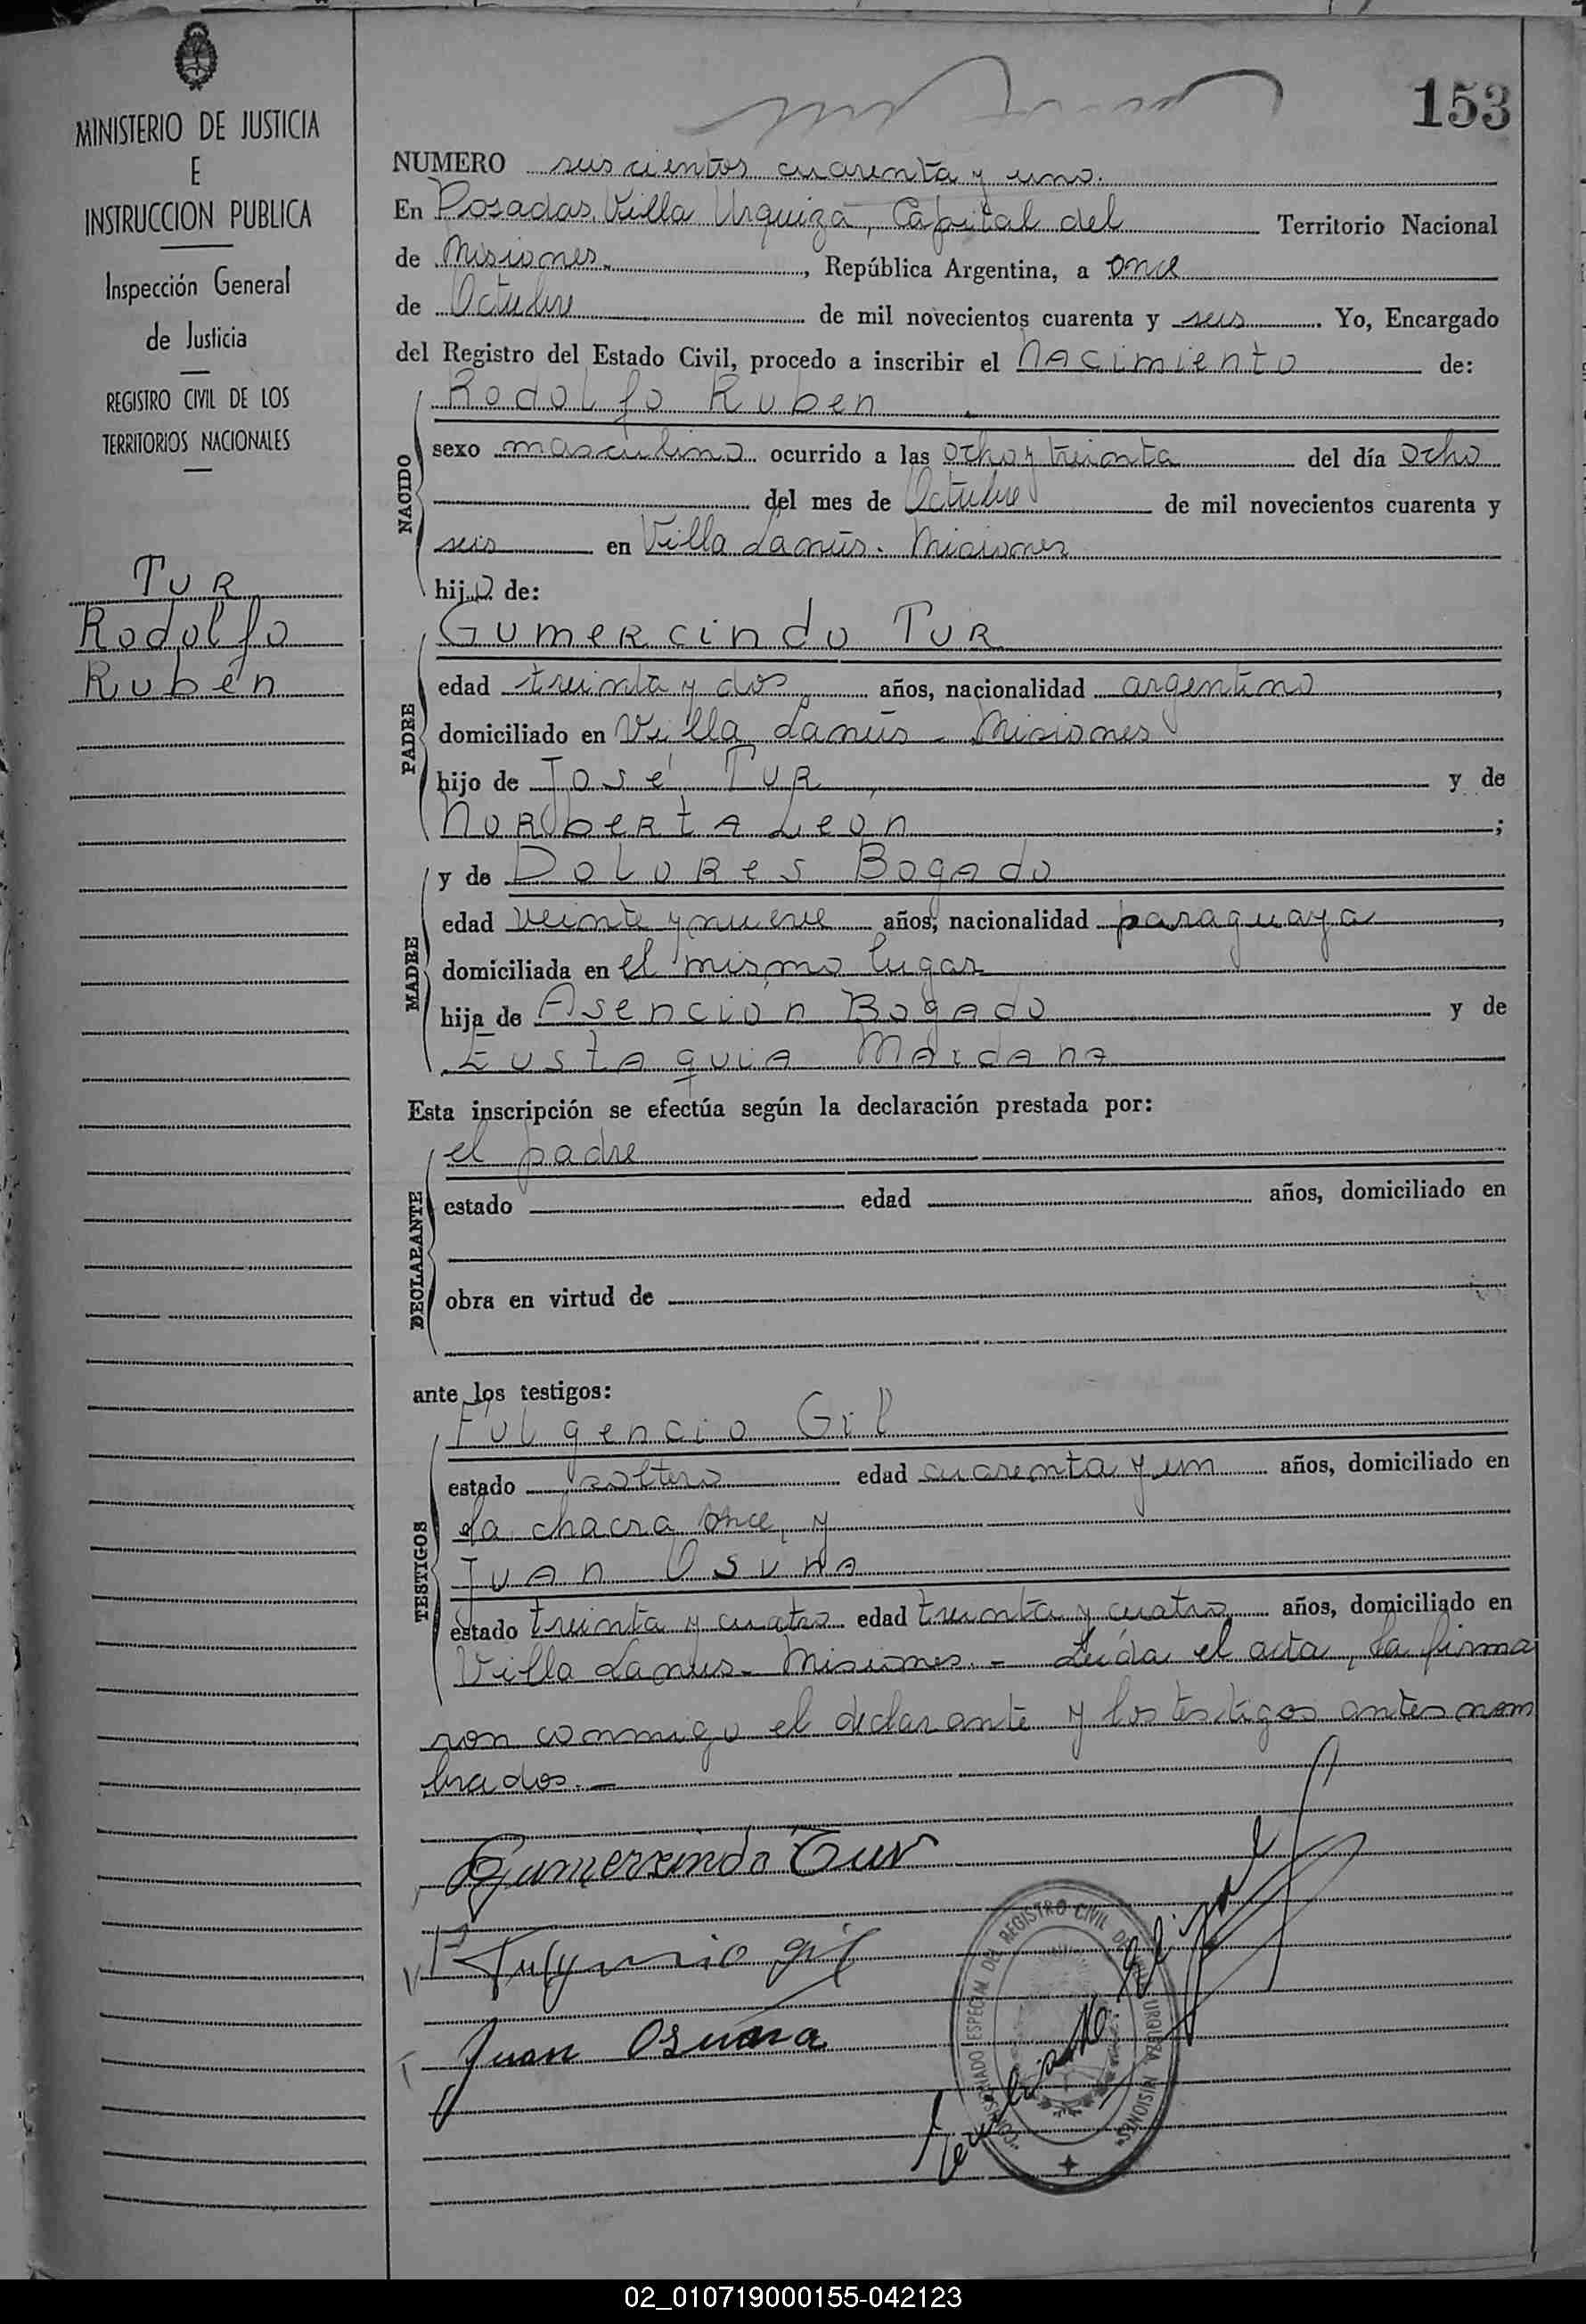 153
MINISTERIO DE JUSTICIA
E
INSTRUCCION PUBLICA
Inspección General
de Justicia
REGISTRO CIVIL DE LOS
TERRITORIOS NACIONALES
Tur
Rodolfo
Rubén
NUMERO seiscientos cuarenta y uno.
En Posadas, Villa Urquiza, Capital del Territorio Nacional
de Misiones, República Argentina, a once
de Octubre de mil novecientos cuarenta y seis. Yo, Encargado
del Registro del Estado Civil, procedo a inscribir el nacimiento de:
Rodolfo Ruben
NACIDO
sexo masculino ocurrido a las ocho y treinta del día ocho
del mes de Octubre de mil novecientos cuarenta y
seis en Villa Lanús. Misiones
hijo de:
Gumercindo Tur
PADRE
edad treinta y dos años, nacionalidad argentino,
domiciliado en Villa Lanús - Misiones
hijo de José Tur y de
Norberta Leon;
y de Dolores Bogado
MADRE
edad veinte y nueve años, nacionalidad paraguaya,
domiciliada en el mismo lugar
hija de Asención Bogado y de
Eustaquia Maidana
Esta inscripción se efectúa según la declaración prestada por:
el padre
DECLARANTE
estado edad años, domiciliado en
obra en virtud de
ante los testigos:
Fulgencio Gil
TESTIGOS
estado soltero edad cuarenta y un años, domiciliado en
la chacra once, y
Juan Osuna
estado treinta y cuatro edad treinta y cuatro años, domiciliado en
Villa Lanus - Misiones. - Leída el acta, la firma
ron conmigo el declarante y los testigos antes nom
brados. -
Gumercindo Tur
Fulgencio Gil
Juan Osuna
COMISIONADO ESPECIAL DEL REGISTRO CIVIL DE URQUIZA MISIONES
02_010719000155-042123